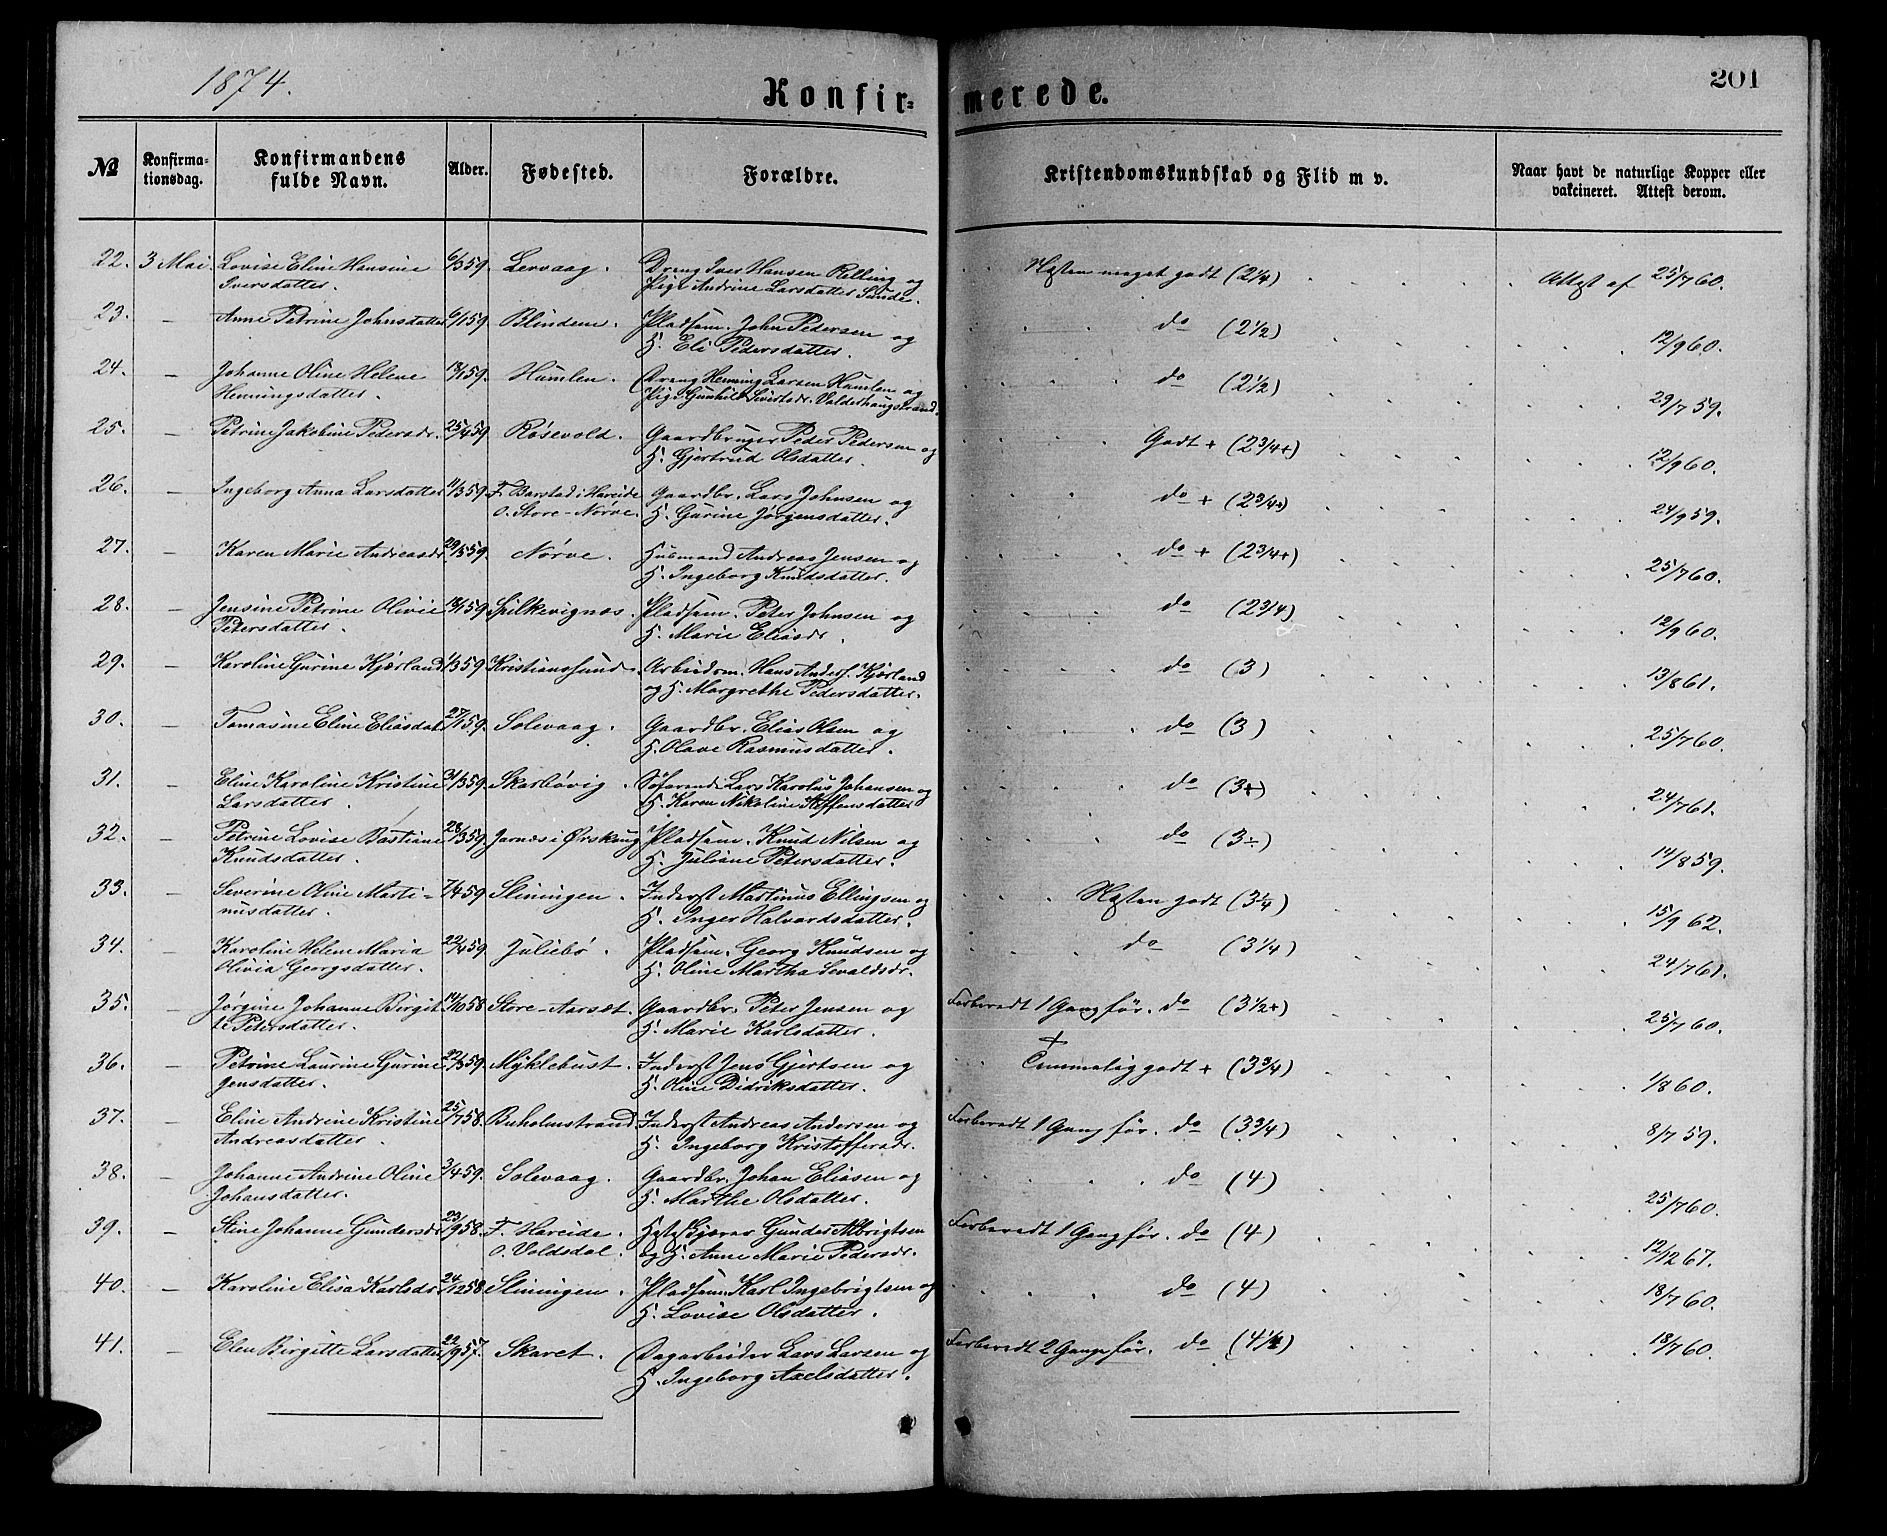 1874.
Konfir-
merede.
201
No
Konfirma-
tionsdag.
Konfirmandens
fulde Navn.
Alder.
Fødested.
Forældre.
Kristendomskundskab og Flid m v.
Naar havt de naturlige Kopper eller
vakcineret. Attest derom.
22. 3 Mai. Lovise Eline Hansine 6/3 59. Lervaag. Dreng Iver Hansen Relling og Næsten meget godt (2 1/4) Attest af 25/7 60.
Iversdatter. Pige Andrine Larsdatter Sunde.
23. — Anne Petrine Johnsdatter 6/1 59. Blindem. Pladsm. John Pedersen og do (2 1/2) 12/9 60.
H. Eli Pedersdatter.
24. — Johanne Oline Helene 18/1 59. Humlen. Dreng Henning Larsen Humlen og do (2 1/2) 29/7 59.
Henningsdatter. Pige Gunhild Sivertsdr. Valderhaugstrand.
25. — Petrine Jakobine Pedersdr. 25/4 59 Røsevold. Gaardbruger Peder Pedersen og Godt + (2 3/4+) 12/9 60.
H. Gjertrud Olsdatter.
26. — Ingeborg Anna Larsdatter 11/3 59. F. Barstad i Hareide Gaardbr. Lars Johnsen og do + (2 3/4+) 24/9 59.
O. Store-Nørve. H. Gurine Jørgensdatter.
27. — Karen Marie Andreasdr. 29/5 59. Nørve. Husmand Andreas Jensen og do + (2 3/4+) 25/7 60.
H. Ingeborg Knudsdatter.
28. — Jensine Petrine Olivie 18/1 59. Spilkevignes. Pladsm. Peter Johnsen og do (2 3/4) 12/9 60.
Petersdatter. H. Marie Eliasdr.
29. — Karoline Gurine Kjærland 1/3 59 Kristianssund. Arbeidsm. Hans Anders. Kjærland do (3) 13/8 61.
og H. Margrethe Pedersdatter.
30. — Tomasine Eline Eliasdat 27/1 59. Solevaag. Gaardbr. Elias Olsen og do (3) 25/7 60.
H. Olave Rasmusdatter.
31. — Eline Karoline Kristine 31/3 59. Skarbøvig. Søfarende Lars Karolus Johansen og do (3+) 24/7 61.
Larsdatter. H. Karen Nikoline Steffensdatter
32. — Petrine Lovise Bastiane 28/3 59. Jarnes i Ørskoug Pladsm. Knud Nilsen og do (3÷) 14/8 59.
Knudsdatter. H. Juliane Petersdatter.
33. — Severine Oline Marti- 7/4 59. Slinningen. Inderst Martinus Ellingsen og Næsten godt (3 1/4) 15/9 62.
nusdatter. H. Inger Halvardsdatter.
34. — Karoline Helene Maria 22/4 59 Juliebø. Pladsm. Georg Knudsen og do (3 1/4) 24/7 61.
Olivia Georgsdatter. H. Oline Martha Sevaldsdr.
35. — Jørgine Johanne Birgit 14/10 58 Store-Aarset. Gaardbr. Peter Jensen og Forberedt 1 Gang før. do (3 1/2+) 25/7 60.
te Petersdatter. H. Marie Karlsdatter.
36. — Petrine Laurine Gurine 22/3 59. Myklebust. Inderst Jens Gjertsen og Temmelig godt + (3 3/4) 1/8 60.
Jensdatter. H. Oline Didriksdatter.
37. — Eline Andrine Kristine 25/7 58. Buholmstrand Inderst Andreas Andersen og Forberedt 1 Gang før. do (3 3/4) 8/7 59.
Andreasdatter. H. Ingeborg Kristoffersdr.
38. — Johanne Andrine Oline 3/4 59. Solevaag. Gaardbr. Johan Eliasen og do (4) 25/7 60.
Johansdatter. H. Marthe Olsdatter.
39. — Stine Johanne Gundersdr 23/9 58. F. Hareide. Gunder Albrigtsen Forberedt 1 Gang før. do (4) 12/12 67.
O. Voldsdal. og H. Anne Marie Pedersdr.
40. — Karoline Elisa Karlsdr 24/12 58 Slinningen. Pladsm. Karl Ingebrigtsen og do (4) 18/7 60.
H. Lovise Olsdatter.
41. — Elen Birgitte Larsdatter 22/9 57. Skaret. Dagarbeider Lars Larsen og Forberedt 2 Gange før. do (4 1/4) 18/7 60.
H. Ingeborg Axelsdatter.